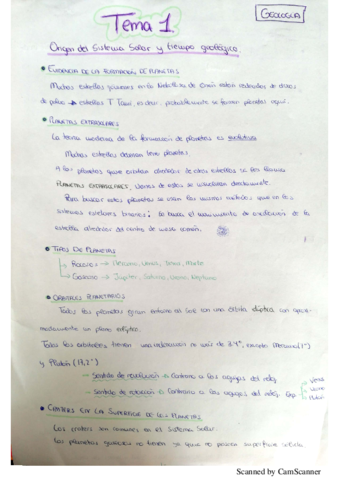 Tema 1
GEOLOGÍA
Origen del Sistema Solar y tiempo geológico.
• EVIDENCIA DE LA FORMACIÓN DE PLANETAS
Muchas estrellas jóvenes en la Nebulosa de Orión están rodeadas de discos
de polvo → estrellas T Tauri, es decir, probablemente se forman planetas aquí.
• PLANETAS EXTRASOLARES
La teoría moderna de la formación de planetas es evolutiva
Muchas estrellas deberían tener planetas
A los planetas que existen alrededor de otras estrellas se les llama
PLANETAS EXTRASOLARES,
Para buscar estos planetas se usan los mismos métodos que en los
sistemas estelares binarios: se busca el movimiento de oscilación de la
estrella alrededor del centro de masa común.
• TIPOS DE PLANETAS
Rocosos → Mercurio, Venus, Tierra, Marte
Gaseosos → Júpiter, Saturno, Urano, Neptuno
• ÓRBITAS PLANETARIAS
Todos los planetas giran entorno al Sol con una órbita elíptica con
un plano elíptico.
Todas las órbitas tienen una inclinación no más de 3,4°, excepto Mercurio (7°)
y Plutón (17,2°)
Sentido de → Contrario a las agujas del reloj
Sentido de rotación → Contrario a las agujas del reloj, Excp
Venus
Urano
Plutón
• CRÁTERES EN LA SUPERFICIE DE LOS PLANETAS
Los cráteres son comunes en el Sistema Solar.
Los planetas gaseosos no tienen ya que no poseen superficie sólida.
Scanned by CamScanner